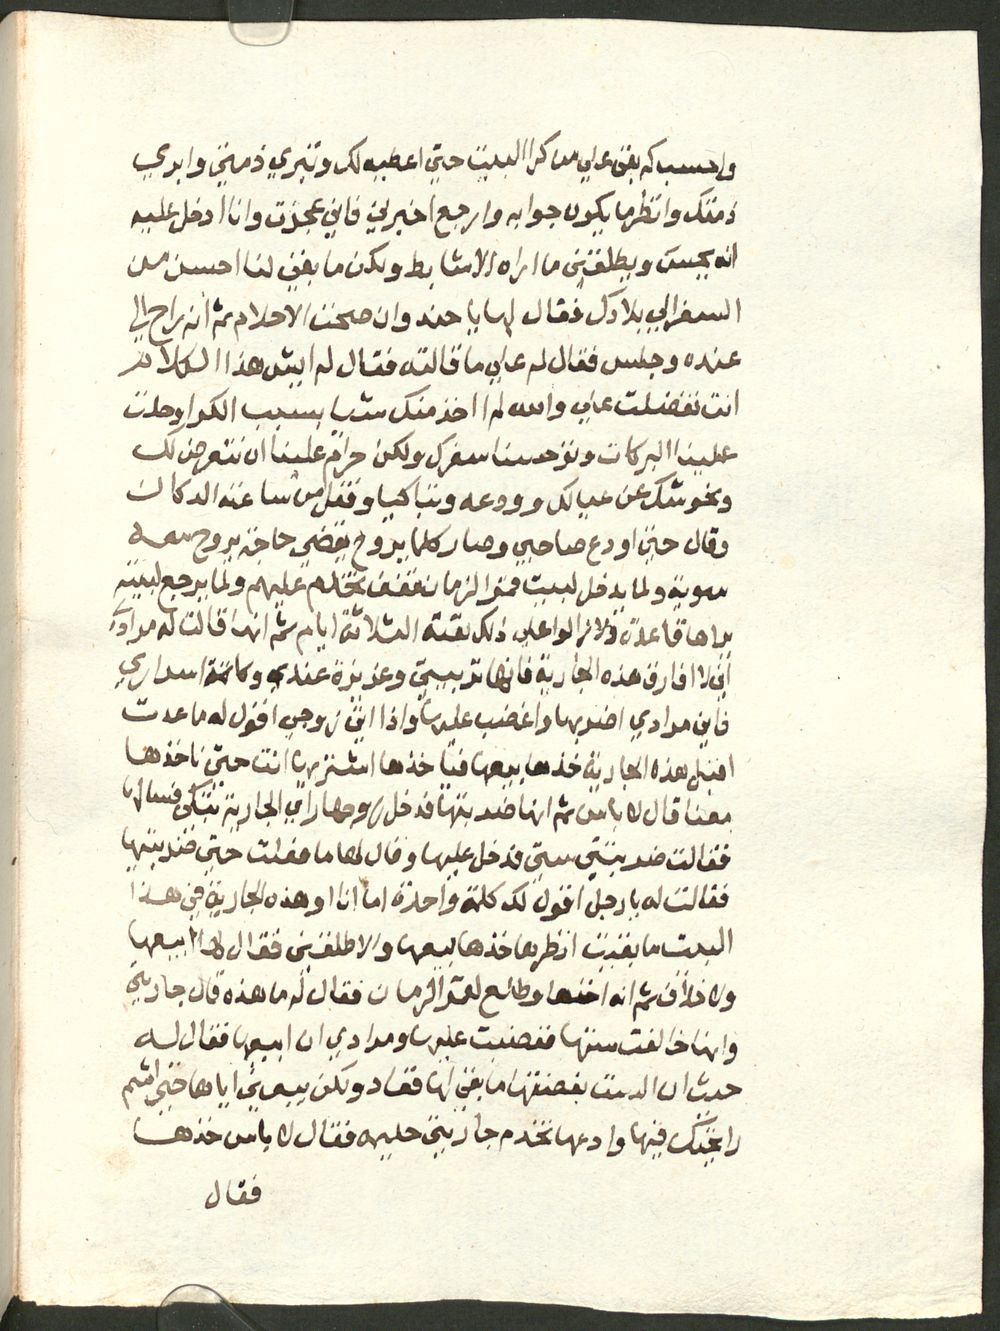 واحسب كم بقى علي من كرا البيت حتى اعطيه لك وتبري ذمتي وابري
ذمتك وانظر ما يكون جوابه وارجع اخبرني فاني عجزت وانا ادخل عليه
انه يحبس ويطلقني ما اراه الا شابط ولكن ما بقى لنا احسن من
السفر الى بلادك فقال لها يا حند وان صحت الاحلام ثم انه راح الى
عنده وجلس فقال له على ما قالته فقال له ايش هذا الكلام
انت تفضلت علي والله لم اخذ منك شيا بسبب الكرا وحلت
علينا البركات وتوحسنا سفرك ولكن حرام علينا ان نتعرض لك
ونخوشك عن عيالك وودعه وتباكيا وقفل من ساعته الدكان
وقال حتى اودع صاحبي وصار كلما يروح يقضي حاجة يروح معه
سوية ولما يدخل لبيت قمر الزمان تقف تخدم عليهم ولما يرجع لبيته
يراها قاعدة ولا زالوا على ذلك بقية الثلاثة ايام ثم انها قالت له مرادي
اني لا افارق هذه الجارية فانها تربيتي وعزيزة عندي وكاتمة اسراري
فاني مرادي اضربها واغضب عليها واذا اتى زوجي اقول له ما عدت
اقبل هذه الجارية خذها بيعها فياخذها اشتريها انت حتى ناخذها
معنا قال لا باس ثم انها ضربتها فدخل زوجها راى الجارية تبكي فسالها
فقالت ضربتني ستي فدخل عليها وقال لها ما فعلت حتى ضربتيها
فقالت له يا رجل اقول لك كلمة واحدة اما انا او هذه الجارية في هذا
البيت ما بقيت انظرها خذها بيعها والا طلقني فقال لها ابيعها
ولا خلاف ثم انه اخذها وطالع لقمر الزمان فقال له ما هذه قال جاريتي
وانها خالفت ستها فغضبت عليها ومرادي ان ابيعها فقال له
حيث ان الست بغضتها ما بقى لها قعاد ولكن بيعني اياها حتى اشم
رايحتك فيها وادعها تخدم جاريتي حليمه فقال لا باس خذها
فقال